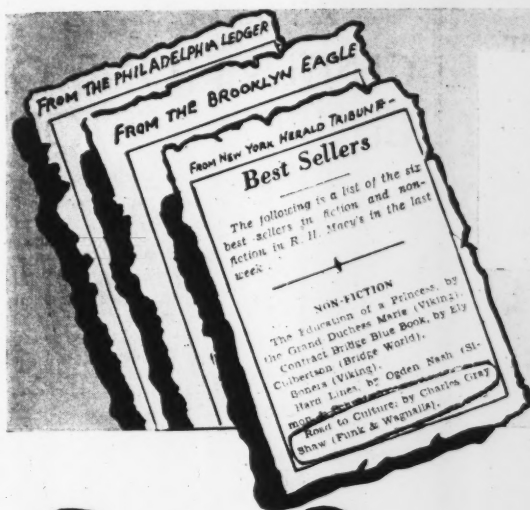 FROM THE PHILADELPHIA LEDGER
FROM THE BROOKLYN EAGLE
FROM NEW YORK HERALD TRIBUNE-
Best Sellers
The following is a list of the six
best sellers in fiction and non-
fiction in R. H. Macy's in the last
week.
NON-FICTION
The Education of a Princess, by
the Grand Duchess Marie (Viking).
Contract Bridge Blue Book, by Ely
Culbertson (Bridge World).
Boners (Viking).
Hard Lines, by Ogden Nash (Si-
mon &
Road to Culture; by Charles Gray
Shaw (Funk & Wagnalls).